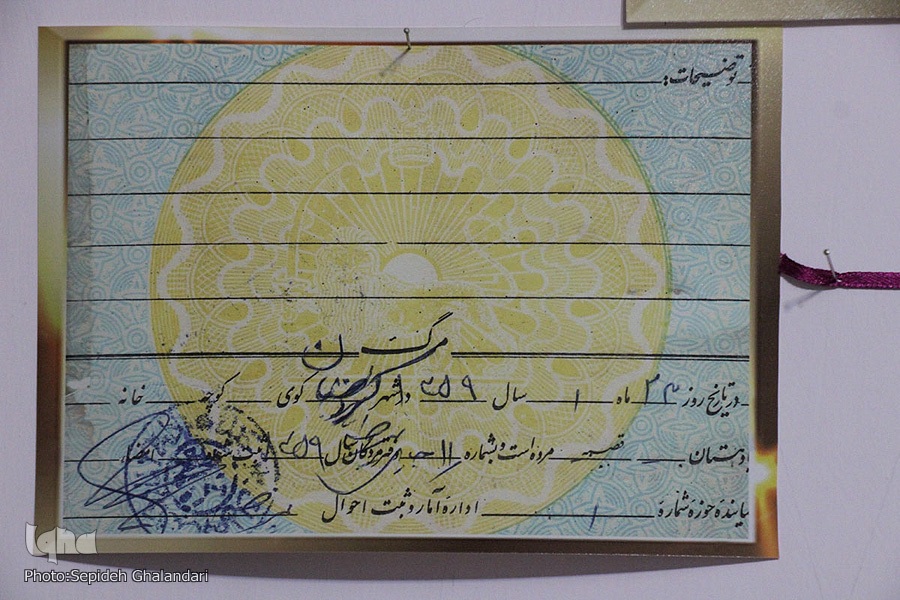 توضیحات:
مرگ
در تاریخ روز ۲۴ ماه ۱ سال ۳۵۹ در شهر کوی کوچه خانه
دهستان قصبه مرده است و بشماره ۱۱ دفتر مردگان سال ۳۵۹ ثبت شد امضاء
نماینده حوزه شماره ۱ اداره آمار و ثبت احوال
iqna
Photo:Sepideh Ghalandari